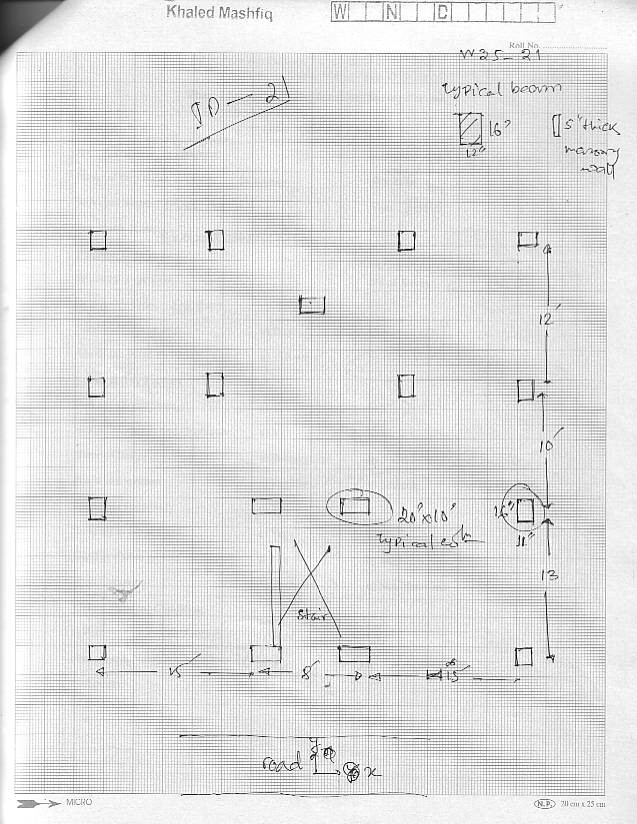 Khaled Mashfiq
W N C
Roll No.
W35-21
ID - 21
Typical beam
16"
12"
5" thick
masonry
wall
12'
10'
20"x10"
Typical
11"
13
Stair
15'
8'
15'
road
x
MICRO
N.P. 20 cm x 25 cm